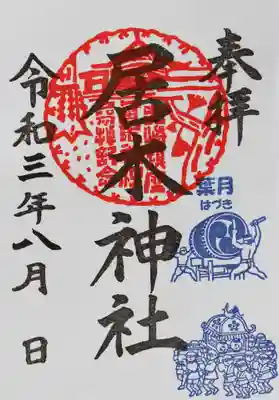 奉拝
葉月
はづき
居木神社
令和三年八月 日